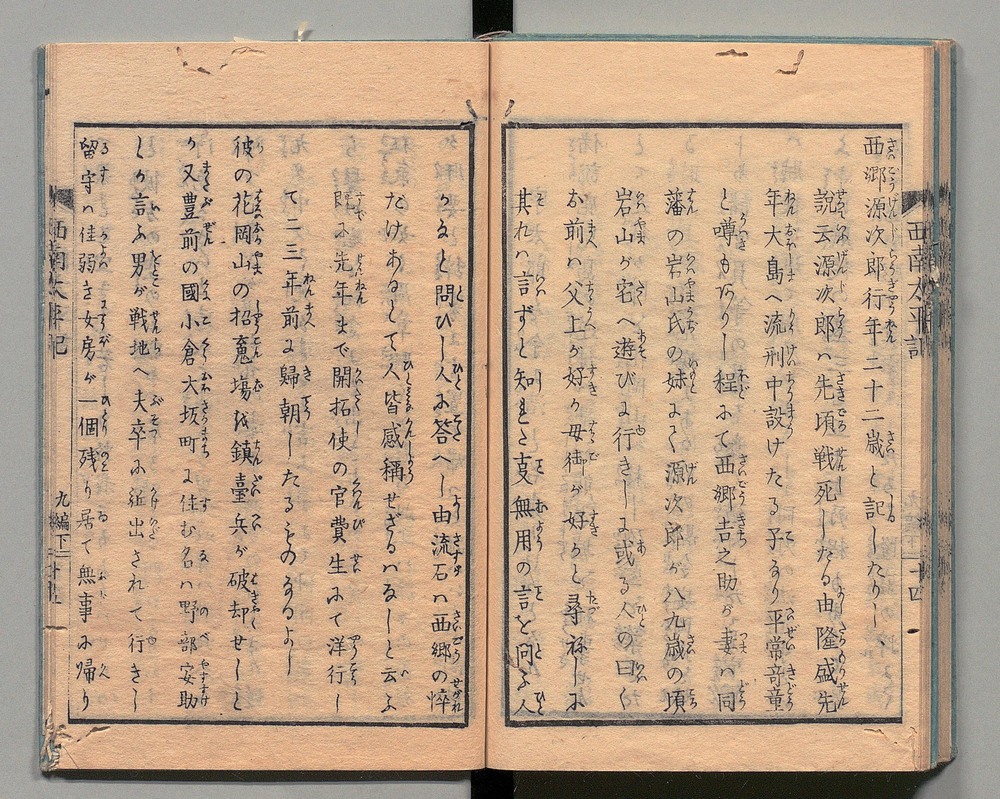 西南太平記
十四
西郷源次郎行年二十二歳と記したり
説云源次郎ハ先頃戦死したる由隆盛先
年大島へ流刑中設けたる子なり平常竒童
と噂もありし程にて西郷吉之助が妻ハ同
藩の岩山氏の妹にて源次郎が八九歳の頃
岩山が宅へ遊びに行きしに或る人の曰く
お前ハ父上が好か母御が好かと尋ねしに
其れハ言ずと知れた事無用の言を問ふ人
かなと問ひし人に答へし由流石ハ西郷の悴
たけあるして人皆感稱せざるハなしと云ふ
既に先年まで開拓使の官費生にて洋行し
て二三年前に歸朝したるものなるよし
彼の花岡山の招䰟塲を鎮臺兵が破却せしと
か又豊前の國小倉大坂町に住む名ハ野部安助
とか言ふ男が戦地へ夫卒に出されて行きし
留守ハ佳弱き女房が一個残り居て無事に帰り
西南太平記
九編下
十五